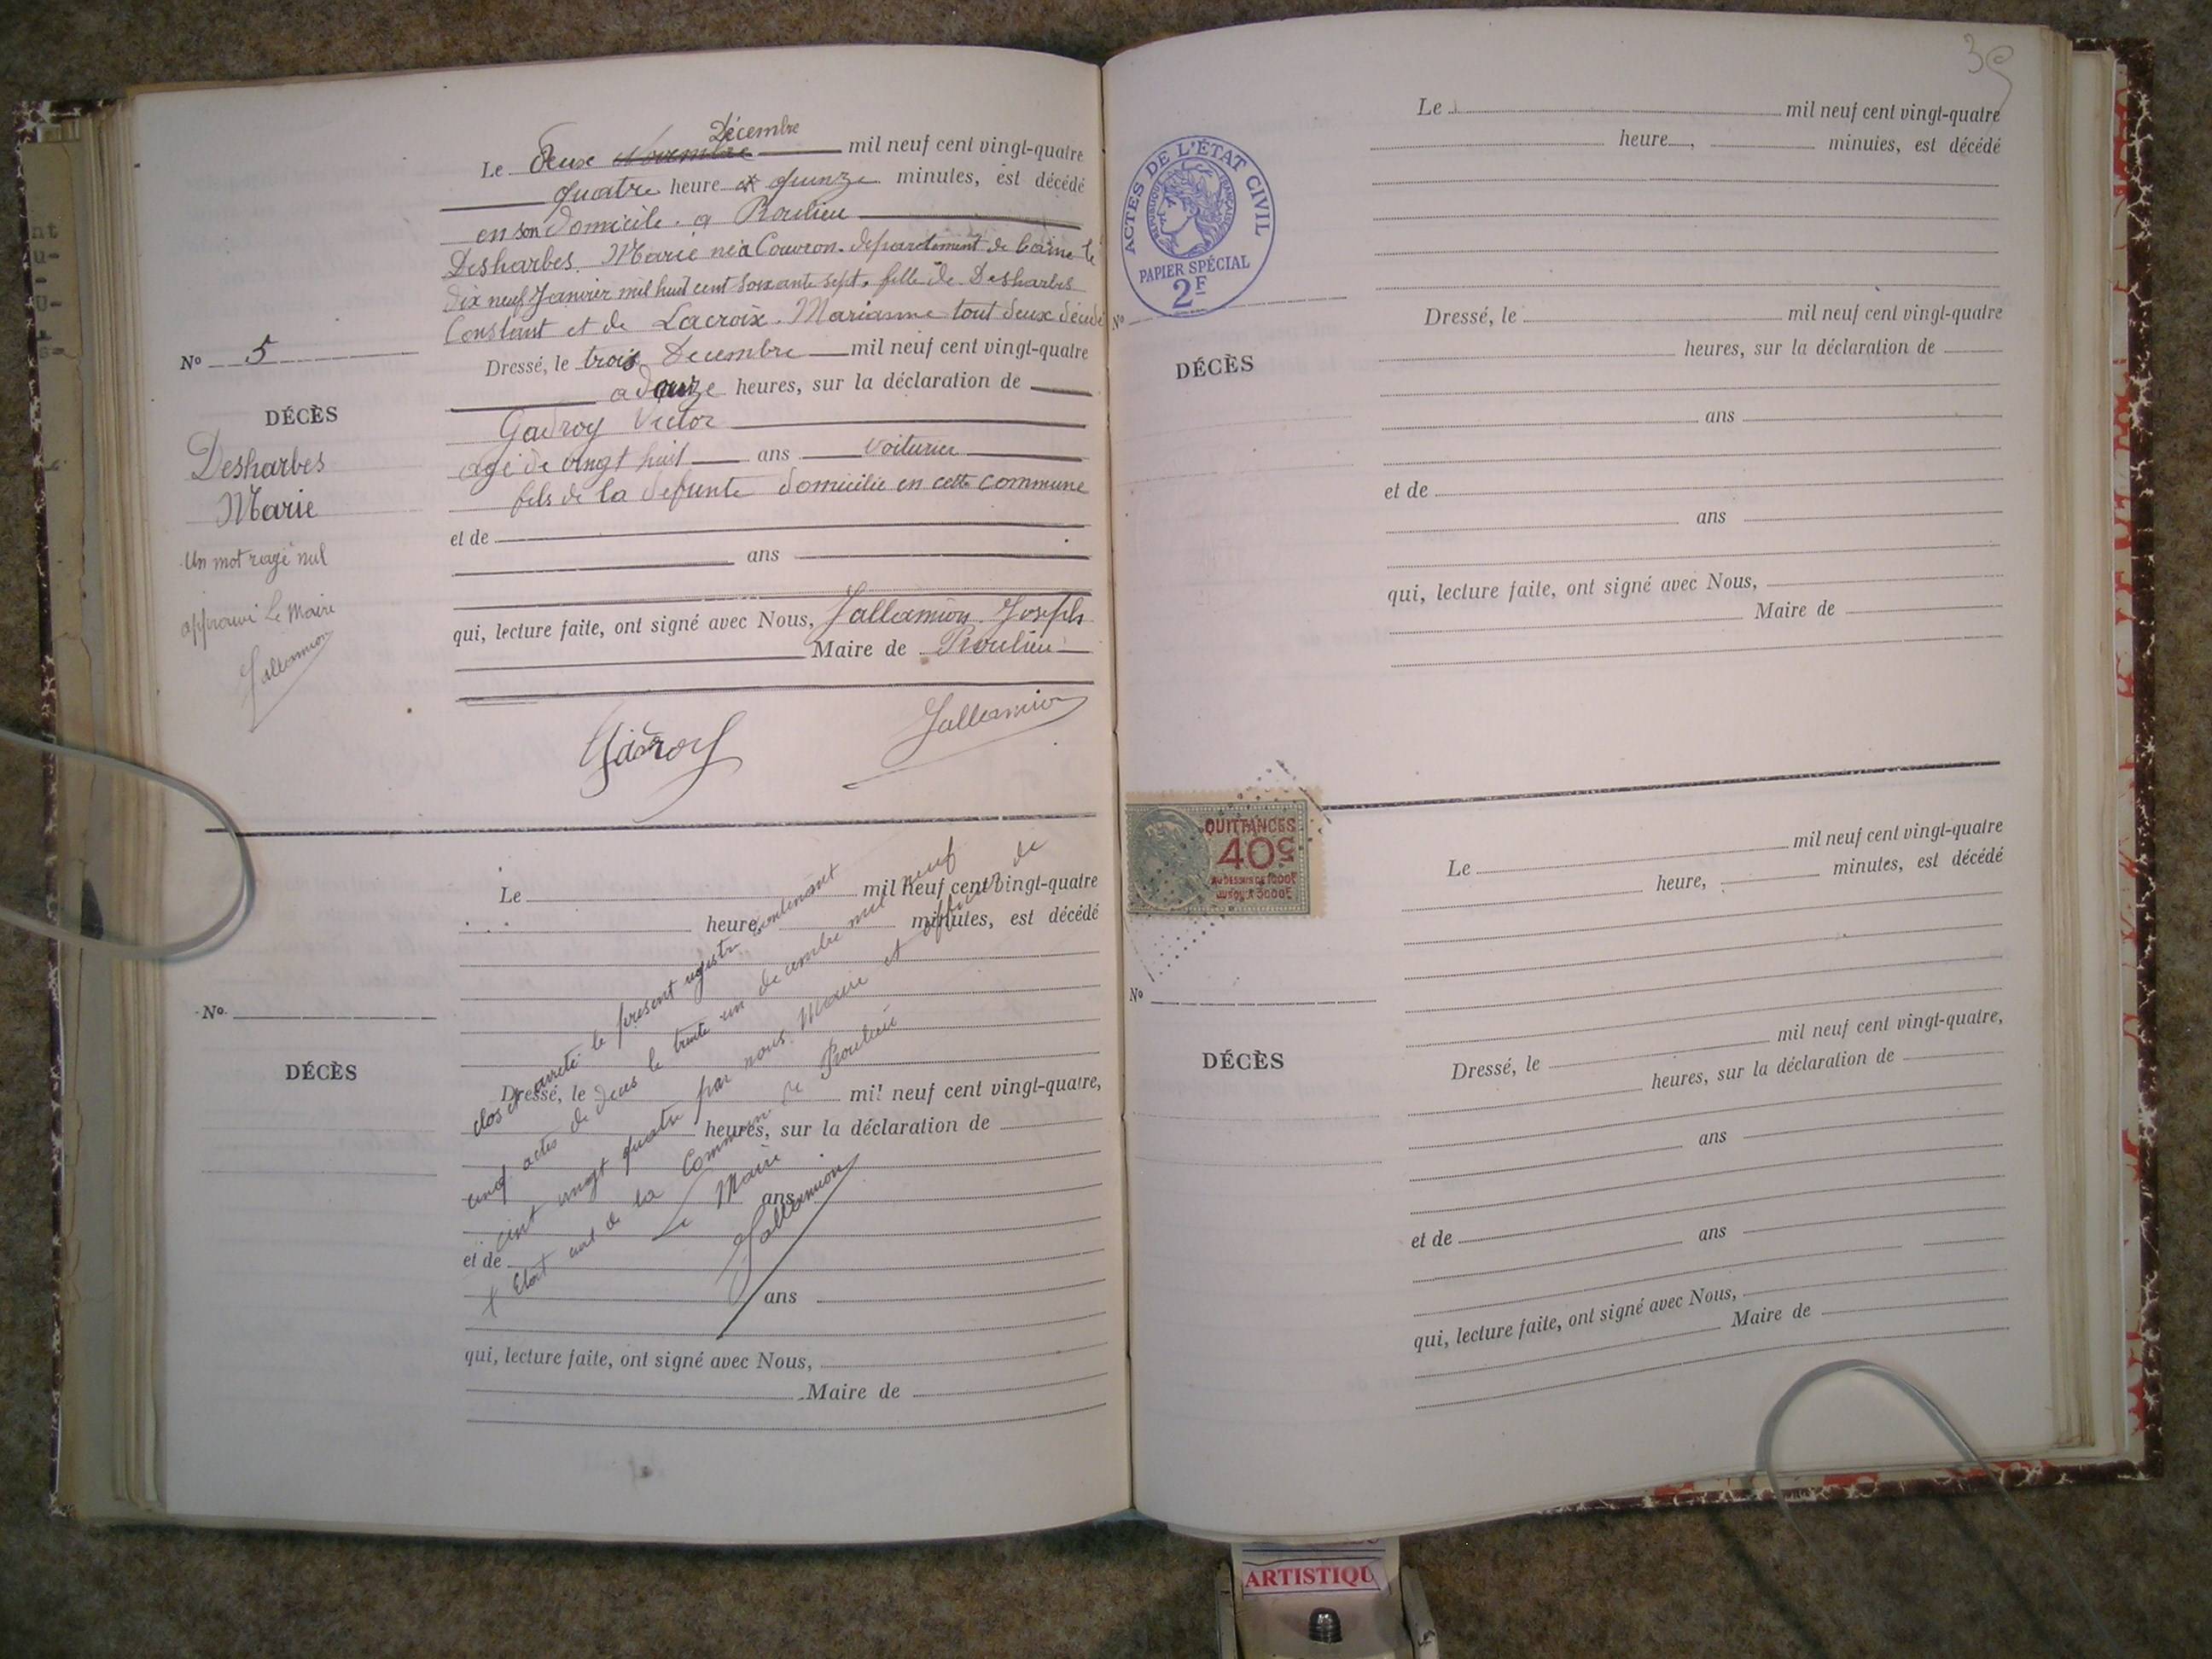 Décembre
Le Deux Novembre mil neuf cent vingt-quatre
quatre heure et quinze minutes, est décédé
en son domicile a Roulieu
Desharbes Marie né a Couvron departement de l'aisne le
dix neuf Janvier mil huit cent soixante sept, fille de Desharbes
Constant et de Lacroix Marianne tout deux décédé
No 5
Dressé, le trois Decembre mil neuf cent vingt-quatre
a onze heures, sur la déclaration de
DÉCÈS
Gadroy Victor
Desharbes
agé de vingt huit ans voiturier
Marie
fils de la defunte domicilié en cette commune
et de
Un mot rayé nul
ans
approuvé Le Maire
qui, lecture faite, ont signé avec Nous, Jallamion Joseph
Jallamion
Maire de Roulieu
Gadroy
Jallamion
Le mil neuf cent vingt-quatre
heure, minutes, est décédé
No
DÉCÈS
Dressé, le mil neuf cent vingt-quatre,
heures, sur la déclaration de
ans
et de
ans
qui, lecture faite, ont signé avec Nous,
Maire de
clos et arreté le present registre contenant
cinq actes de deces le trente un decembre mil neuf
cent vingt quatre par nous Maire et officier de
+ Etat civil de la Commune de Roulieu
Le Maire
Jallamion
Le mil neuf cent vingt-quatre
heure, minutes, est décédé
ACTES DE L'ÉTAT CIVIL
RÉPUBLIQUE FRANÇAISE
PAPIER SPÉCIAL
2F
No
DÉCÈS
Dressé, le mil neuf cent vingt-quatre
heures, sur la déclaration de
ans
et de
ans
qui, lecture faite, ont signé avec Nous,
Maire de
QUITTANCES
40c
AU DESSUS DE 1000F
JUSQU'A 3000F
Le mil neuf cent vingt-quatre
heure, minutes, est décédé
No
DÉCÈS
Dressé, le mil neuf cent vingt-quatre,
heures, sur la déclaration de
ans
et de
ans
qui, lecture faite, ont signé avec Nous,
Maire de
ARTISTIQU